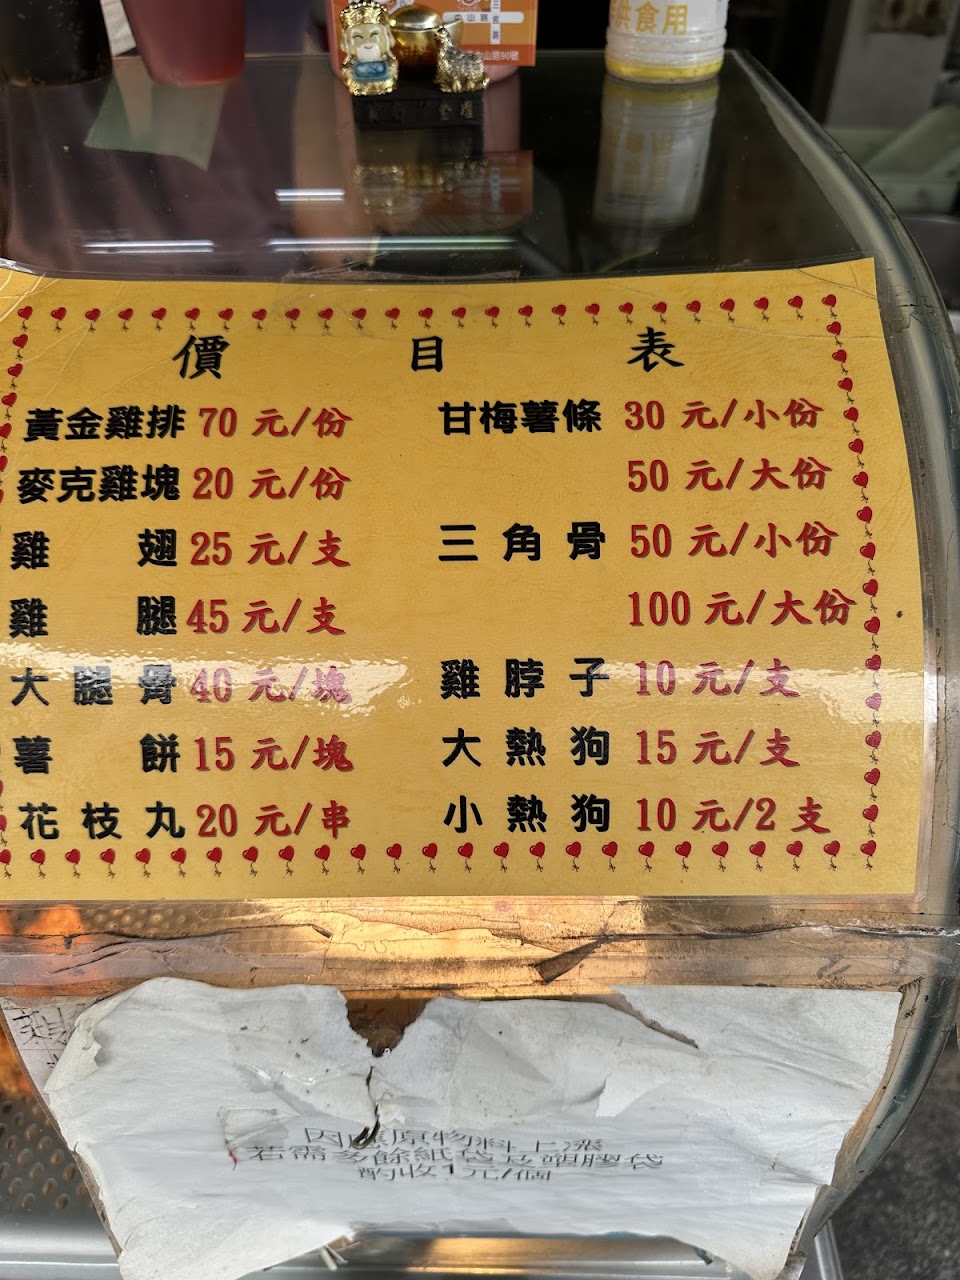 供食用
中山路
價目表
黃金雞排 70 元/份
麥克雞塊 20 元/份
雞翅 25 元/支
雞腿 45 元/支
大腿骨 40 元/塊
薯餅 15 元/塊
花枝丸 20 元/串
甘梅薯條 30 元/小份
50 元/大份
三角骨 50 元/小份
100 元/大份
雞脖子 10 元/支
大熱狗 15 元/支
小熱狗 10 元/2 支
因應原物料上漲
若需多餘紙袋及塑膠袋
酌收1元/個